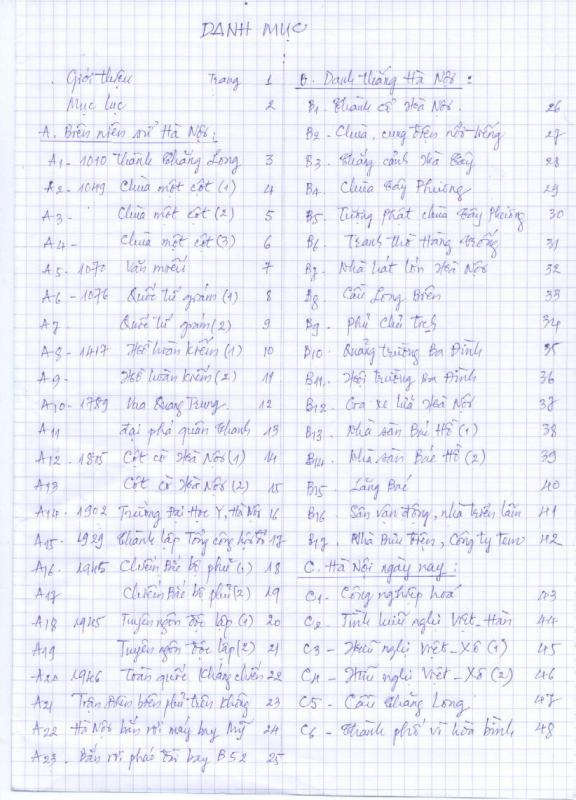 DANH MỤC
Giới thiệu Trang 1
Mục lục 2
A. Biên niên sử Hà Nội :
A1 - 1010 Thành Thăng Long 3
A2 - 1049 Chùa một cột (1) 4
A3 - Chùa một cột (2) 5
A4 - Chùa một cột (3) 6
A5 - 1070 Văn miếu 7
A6 - 1076 Quốc tử giám (1) 8
A7 Quốc tử giám (2) 9
A8 - 1417 Hồ hoàn kiếm (1) 10
A9 - Hồ hoàn kiếm (2) 11
A10 - 1789 Vua Quang Trung 12
A11 Đại phá quân Thanh 13
A12 - 1805 Cột cờ Hà Nội (1) 14
A13 Cột cờ Hà Nội (2) 15
A14 - 1902 Trường Đại Học Y, Hà Nội 16
A15 - 1929 Thành lập Tổng công hội đỏ 17
A16 - 1945 Chiếm Bắc bộ phủ (1) 18
A17 Chiếm Bắc bộ phủ (2) 19
A18 1945 Tuyên ngôn độc lập (1) 20
A19 Tuyên ngôn độc lập (2) 21
A20 1946 Toàn quốc kháng chiến 22
A21 Trận Điện biên phủ trên không 23
A22 Hà Nội bắn rơi máy bay Mỹ 24
A23 - Bắn rơi pháo đài bay B52 25
B. Danh thắng Hà Nội :
B1 - Thành cổ Hà Nội. 26
B2 - Chùa, cung điện nổi tiếng 27
B3 - Thắng cảnh Hà Tây 28
B4 - Chùa Tây Phương 29
B5 - Tượng phật chùa Tây Phương 30
B6 - Tranh thờ Hàng Trống 31
B7 - Nhà hát lớn Hà Nội 32
B8 - Cầu Long Biên 33
B9 - Phủ Chủ tịch 34
B10 - Quảng trường Ba Đình 35
B11 - Hội trường Ba Đình 36
B12 - Ga xe lửa Hà Nội 37
B13 - Nhà sàn Bác Hồ (1) 38
B14 - Nhà sàn Bác Hồ (2) 39
B15 - Lăng Bác 40
B16 - Sân vận động, nhà triển lãm 41
B17 - Nhà Bưu Điện, Công ty tem 42
C. Hà Nội ngày nay :
C1 - Công nghiệp hoá 43
C2 - Tình hữu nghị Việt - Hàn 44
C3 - Hữu nghị Việt - Xô (1) 45
C4 - Hữu nghị Việt - Xô (2) 46
C5 - Cầu Thăng Long 47
C6 - Thành phố vì hòa bình 48